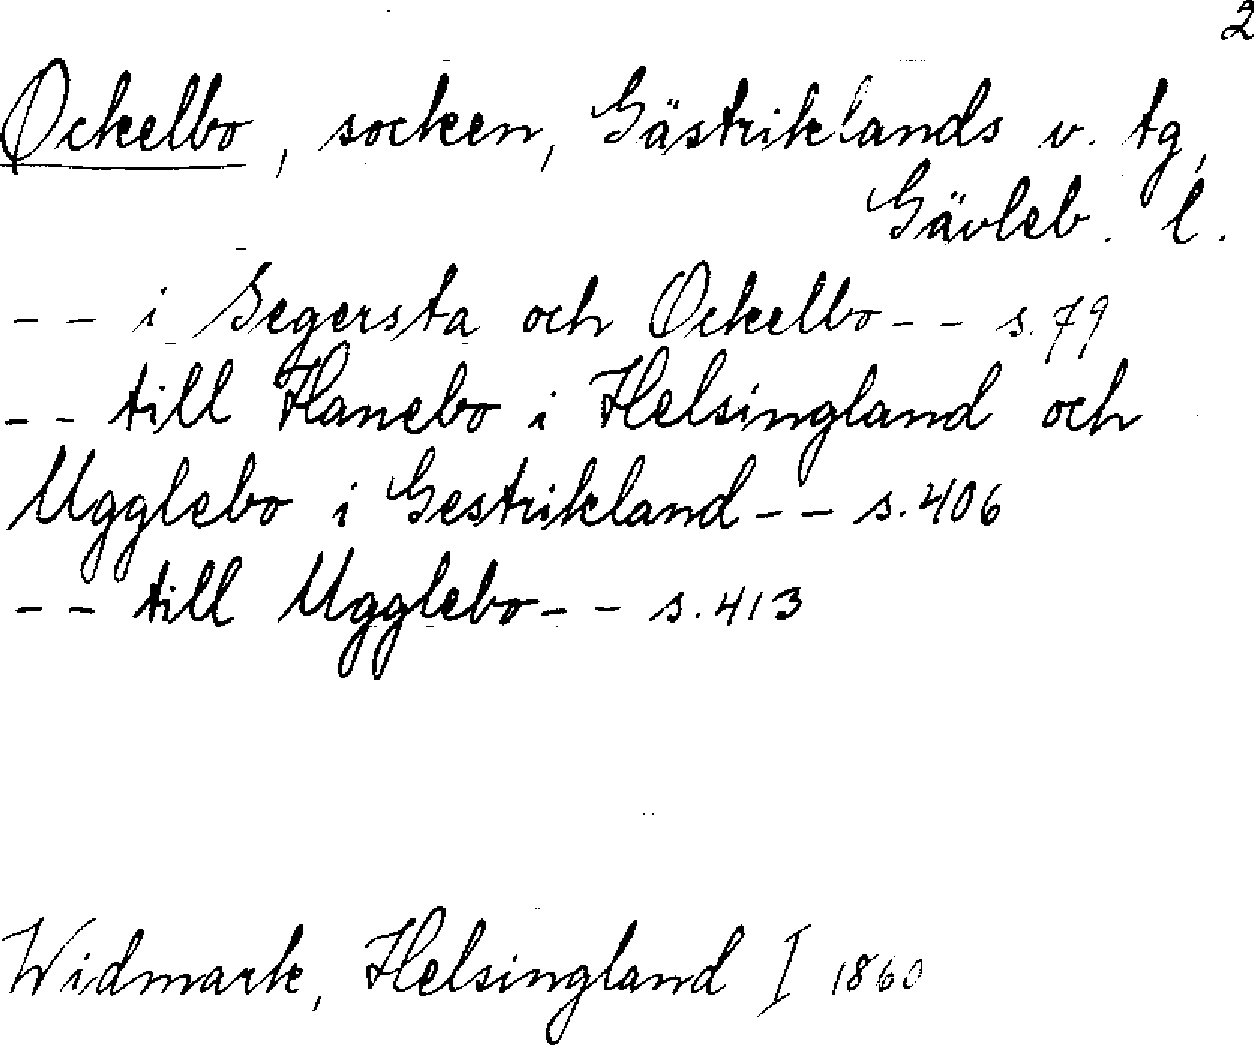 2
Ockelbo, socken, Gästriklands v. tg,
Gävleb. l.
-- i Segersta och Ockelbo -- s. 79
-- till Hanebo i Helsingland och
Ugglebo i Gestrikland -- s. 406
-- till Ugglebo -- s. 413
Widmark, Helsingland I 1860